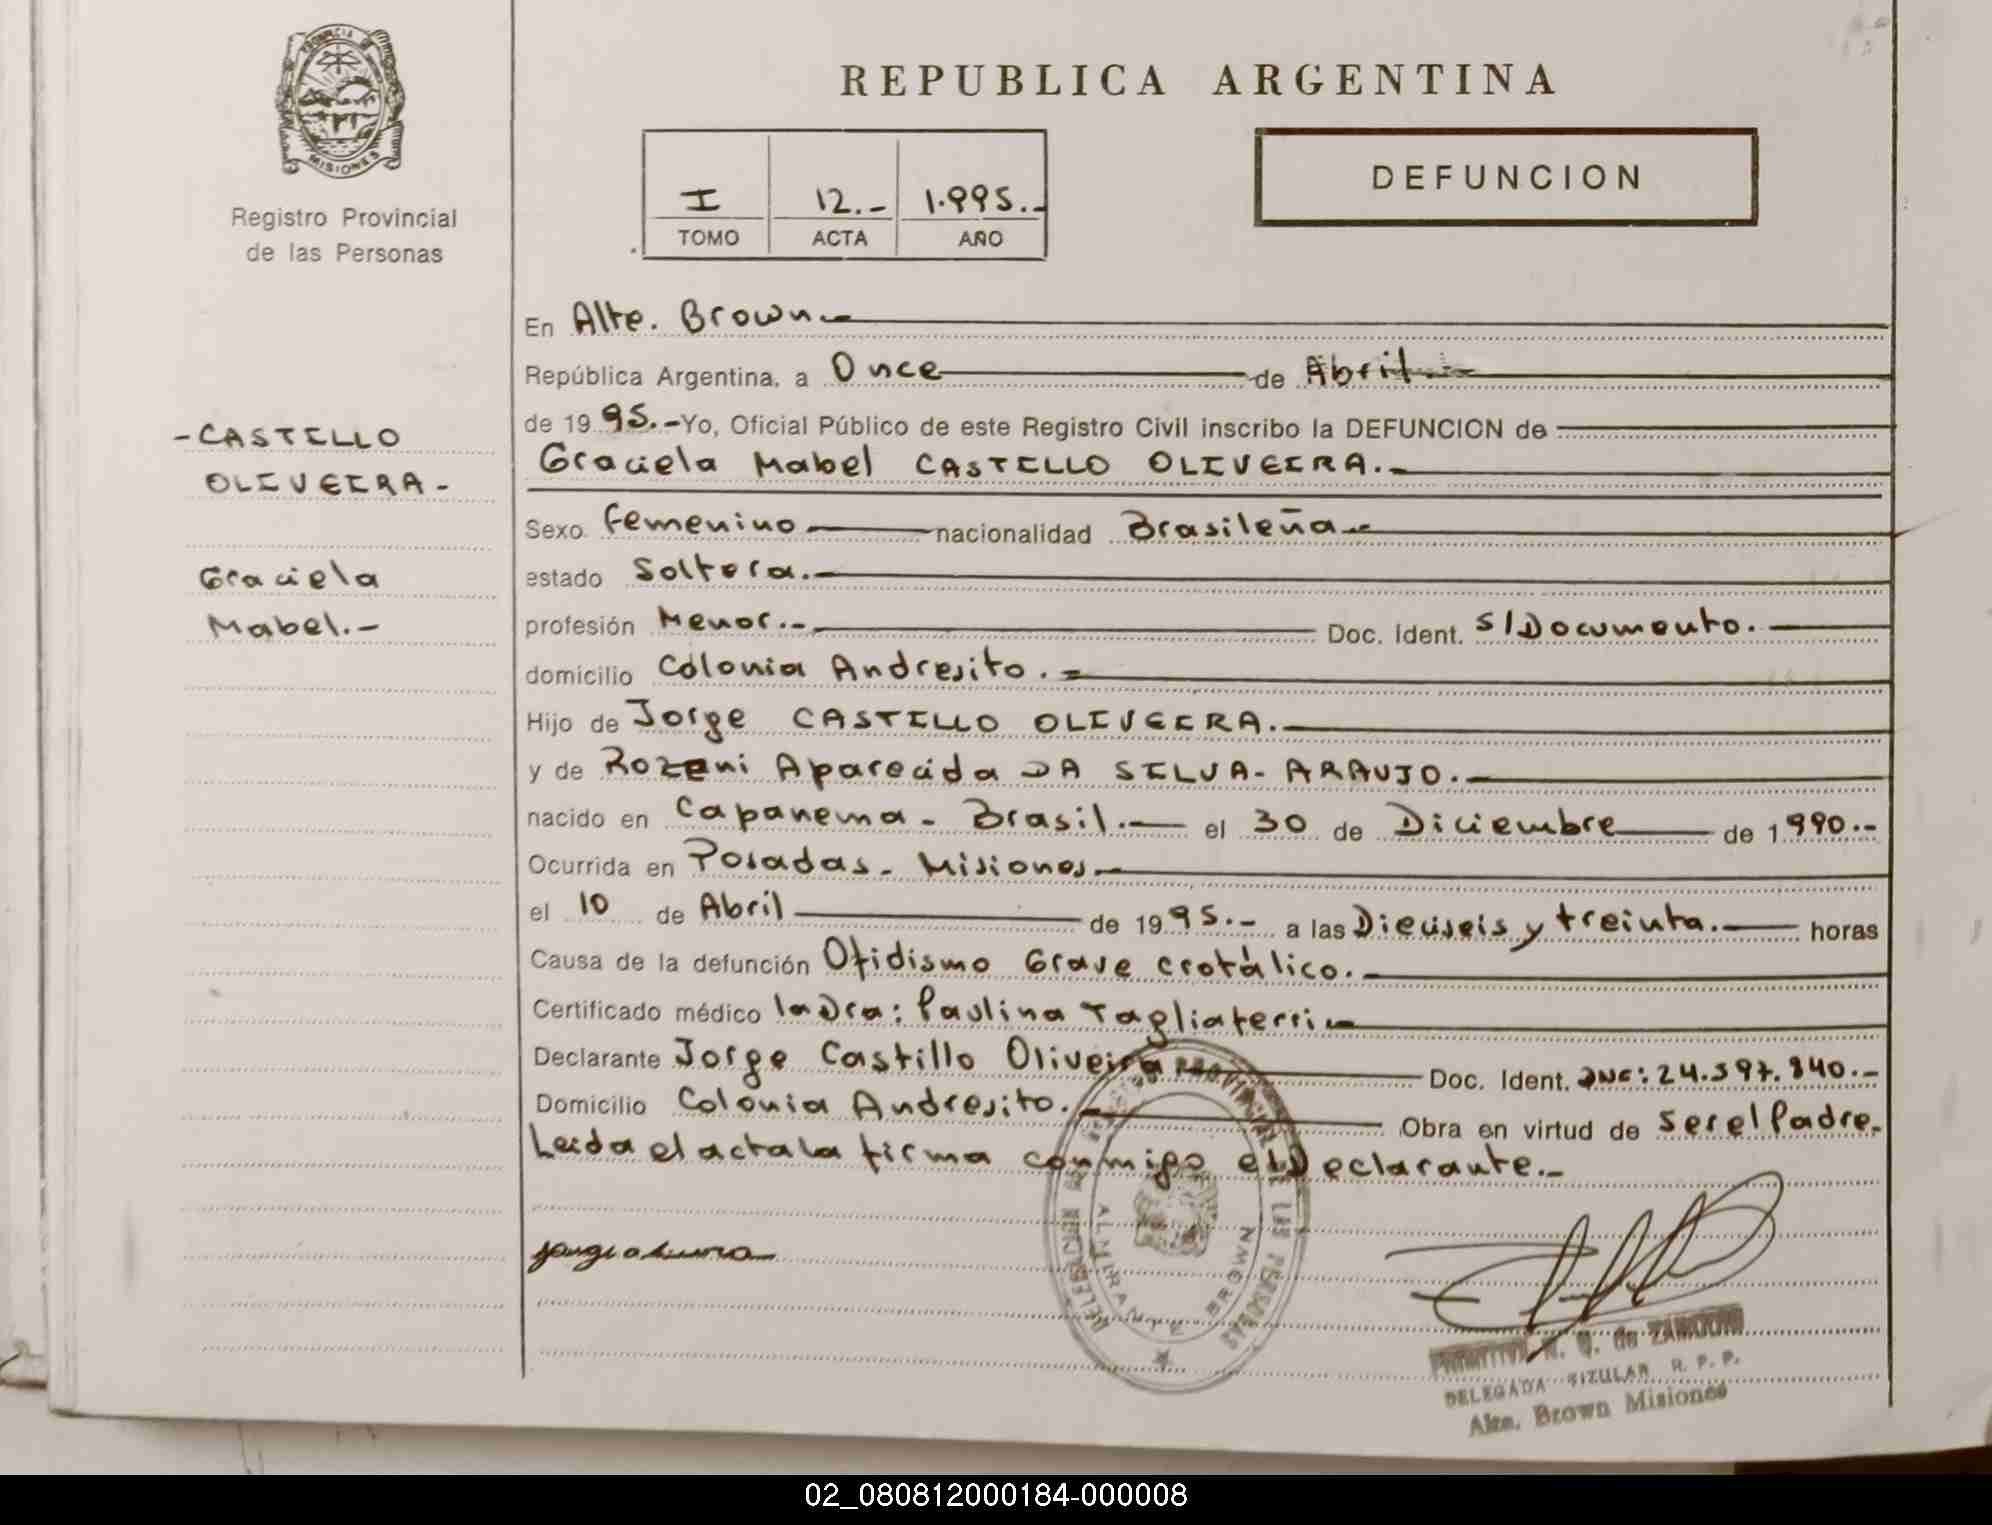 PROVINCIA DE
MISIONES
Registro Provincial
de las Personas
REPUBLICA ARGENTINA
DEFUNCION
I 12.- 1.995.-
TOMO ACTA AÑO
-CASTILLO
OLIVEIRA-
Graciela
Mabel.-
En Alte. Brown.-
República Argentina, a Once de Abril
de 1995.- Yo, Oficial Público de este Registro Civil inscribo la DEFUNCION de
Graciela Mabel CASTILLO OLIVEIRA.-
Sexo femenino nacionalidad Brasileña.-
estado Soltera.-
profesión Menor.- Doc. Ident. S/Documento.-
domicilio Colonia Andresito.-
Hijo de Jorge CASTILLO OLIVEIRA.-
y de Rozeni Aparecida DA SILVA-ARAUJO.-
nacido en Capanema - Brasil.- el 30 de Diciembre de 1990.-
Ocurrida en Posadas - Misiones.-
el 10 de Abril de 1995.- a las Dieciseis y treinta.- horas
Causa de la defunción Ofidismo Grave crotálico.-
Certificado médico la Dra: Paulina Tagliaferri.-
Declarante Jorge Castillo Oliveira Doc. Ident. DNI: 24.397.840.-
Domicilio Colonia Andresito.- Obra en virtud de ser el Padre.-
Leida el acta la firma conmigo el Declarante.-
DELEGACION
PROVINCIAL DE LAS PERSONAS
ALMIRANTE BROWN
N. Q. de
DELEGADA TITULAR R. P. P.
Alte. Brown Misiones
02_080812000184-000008